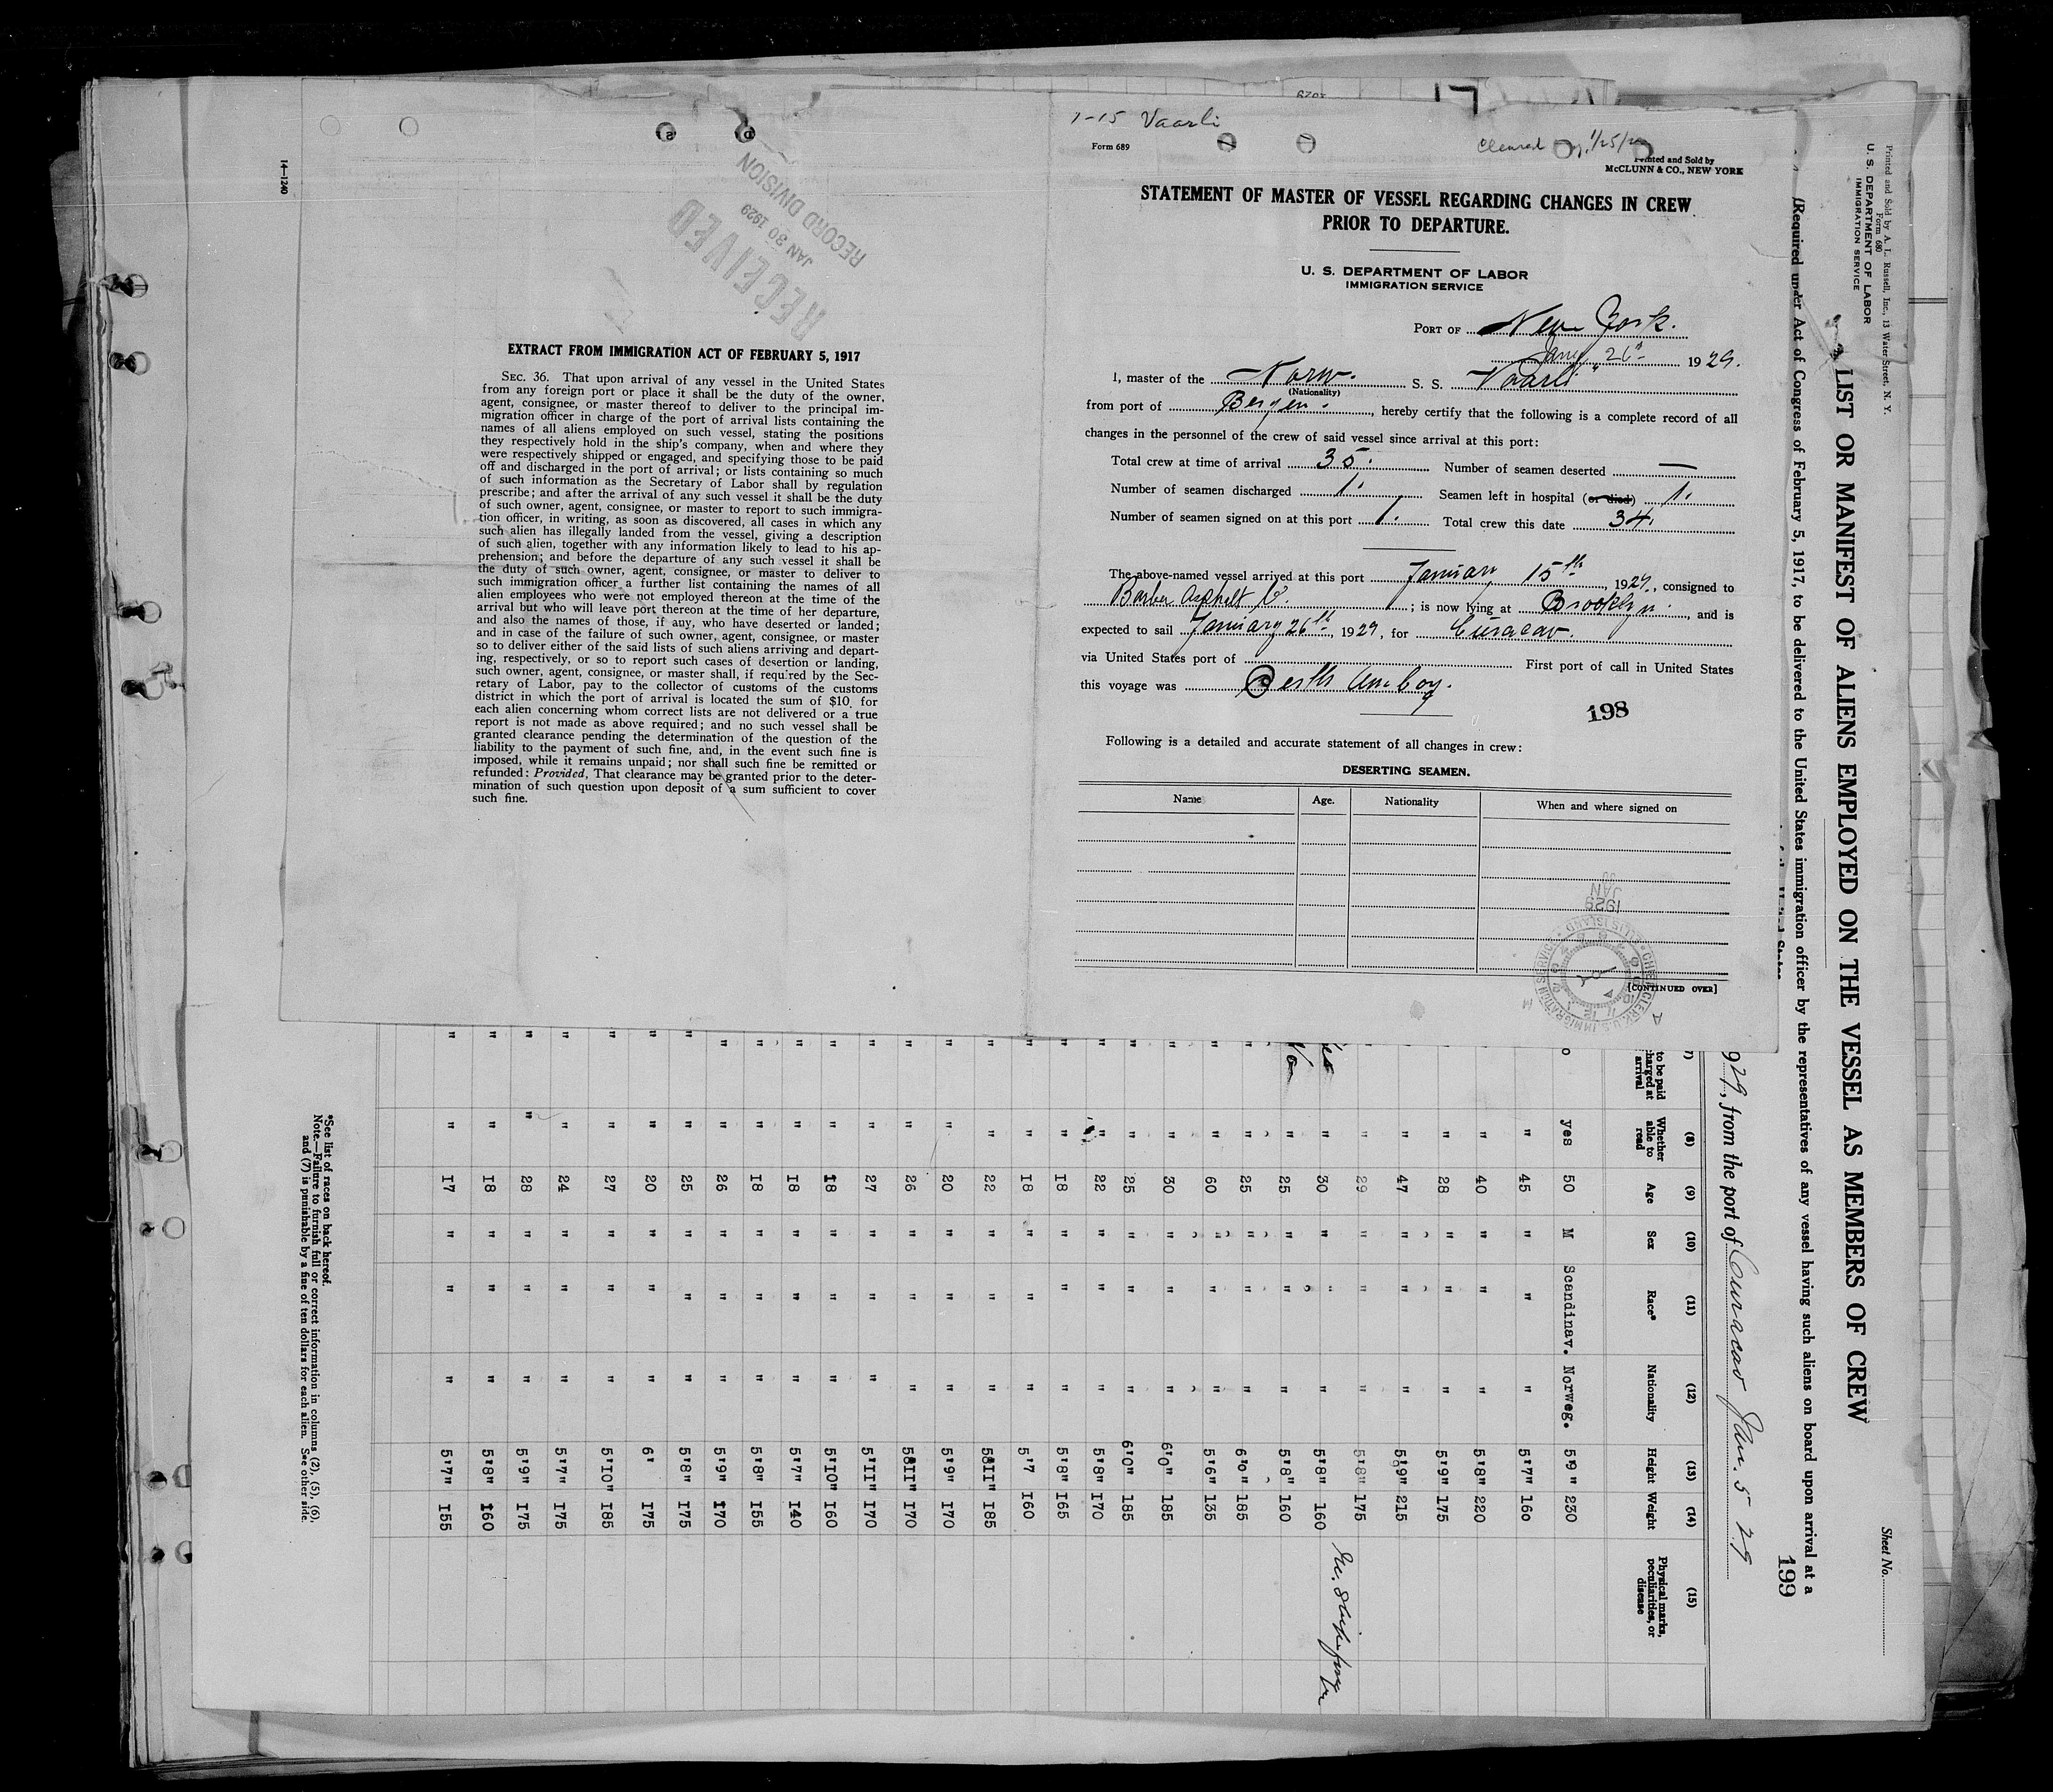 14—1240
RECEIVED
JAN 30 1929
RECORD DIVISION
EXTRACT FROM IMMIGRATION ACT OF FEBRUARY 5, 1917
SEC. 36. That upon arrival of any vessel in the United States
from any foreign port or place it shall be the duty of the owner,
agent, consignee, or master thereof to deliver to the principal im-
migration officer in charge of the port of arrival lists containing the
names of all aliens employed on such vessel, stating the positions
they respectively hold in the ship's company, when and where they
were respectively shipped or engaged, and specifying those to be paid
off and discharged in the port of arrival; or lists containing so much
of such information as the Secretary of Labor shall by regulation
prescribe; and after the arrival of any such vessel it shall be the duty
of such owner, agent, consignee, or master to report to such immigra-
tion officer, in writing, as soon as discovered, all cases in which any
such alien has illegally landed from the vessel, giving a description
of such alien, together with any information likely to lead to his ap-
prehension; and before the departure of any such vessel it shall be
the duty of such owner, agent, consignee, or master to deliver to
such immigration officer a further list containing the names of all
alien employees who were not employed thereon at the time of the
arrival but who will leave port thereon at the time of her departure,
and also the names of those, if any, who have deserted or landed;
and in case of the failure of such owner, agent, consignee, or master
so to deliver either of the said lists of such aliens arriving and depart-
ing, respectively, or so to report such cases of desertion or landing,
such owner, agent, consignee, or master shall, if required by the Sec-
retary of Labor, pay to the collector of customs of the customs
district in which the port of arrival is located the sum of $10 for
each alien concerning whom correct lists are not delivered or a true
report is not made as above required; and no such vessel shall be
granted clearance pending the determination of the question of the
liability to the payment of such fine, and, in the event such fine is
imposed, while it remains unpaid; nor shall such fine be remitted or
refunded: Provided, That clearance may be granted prior to the deter-
mination of such question upon deposit of a sum sufficient to cover
such fine.
1-15 Vaarli
Form 689
Cleared 1/25/29
Printed and Sold by
McCLUNN & CO., NEW YORK
STATEMENT OF MASTER OF VESSEL REGARDING CHANGES IN CREW
PRIOR TO DEPARTURE.
U. S. DEPARTMENT OF LABOR
IMMIGRATION SERVICE
PORT OF New York.
Jany 26th 1929.
I, master of the Norw. S. S. "Vaarli"
(Nationality)
from port of Bergen., hereby certify that the following is a complete record of all
changes in the personnel of the crew of said vessel since arrival at this port:
Total crew at time of arrival 35. Number of seamen deserted —
Number of seamen discharged 1. Seamen left in hospital (or died) 1.
Number of seamen signed on at this port 1. Total crew this date 34.
The above-named vessel arrived at this port January 15th, 1929, consigned to
Barber Asphalt C.; is now lying at Brooklyn., and is
expected to sail January 26th, 1929, for Curacao.
via United States port of First port of call in United States
this voyage was Perth Amboy.
198
Following is a detailed and accurate statement of all changes in crew:
DESERTING SEAMEN.
Name Age. Nationality When and where signed on
JAN 1929
CHIEF CLERK U.S. IMMIGRATION SERVICE ELLIS ISLAND
[CONTINUED OVER]
Printed and Sold by A. L. Russell, Inc., 13 Water Street, N. Y.
Form 680
U. S. DEPARTMENT OF LABOR
IMMIGRATION SERVICE
Sheet No.
LIST OR MANIFEST OF ALIENS EMPLOYED ON THE VESSEL AS MEMBERS OF CREW
(Required under Act of Congress of February 5, 1917, to be delivered to the United States immigration officer by the representatives of any vessel having such aliens on board upon arrival at a
199
929, from the port of Curacao Jan. 5 29
to be paid
charged at
arrival
(8) Whether able to read
(9) Age
(10) Sex
(11) Race*
(12) Nationality
(13) Height
(14) Weight
(15) Physical marks, peculiarities, or disease
yes 50 M Scandinav. Norweg. 5'9" 230
" 45 " " " 5'7" 160
" 40 " " " 5'8" 220
" 28 " " " 5'9" 175
" 47 " " " 5'9" 215
" 29 " " " 5'8" 175
" 30 " " " 5'8" 160
" 25 " " " 5'8" 160
" 25 " " " 6'0" 185
" 60 " " " 5'6" 135
" 30 " " " 6'0" 185
" 25 " " " 6'0" 185
" 22 " " " 5'8" 170
" 18 " " " 5'8" 165
" 18 " " " 5'7 160
" 22 " " " 5'11" 185
" 20 " " " 5'9" 170
" 26 " " " 5'11" 170
" 27 " " " 5'11" 170
" 18 " " " 5'10" 160
" 18 " " " 5'7" 140
" 18 " " " 5'8" 155
" 26 " " " 5'9" 170
" 25 " " " 5'8" 175
" 20 " " " 6' 175
" 27 " " " 5'10" 185
" 24 " " " 5'7" 175
" 28 " " " 5'9" 175
" 18 " " " 5'8" 160
" 17 " " " 5'7" 155
*See list of races on back hereof.
Note.—Failure to furnish full or correct information in columns (2), (5), (6),
and (7) is punishable by a fine of ten dollars for each alien. See other side.